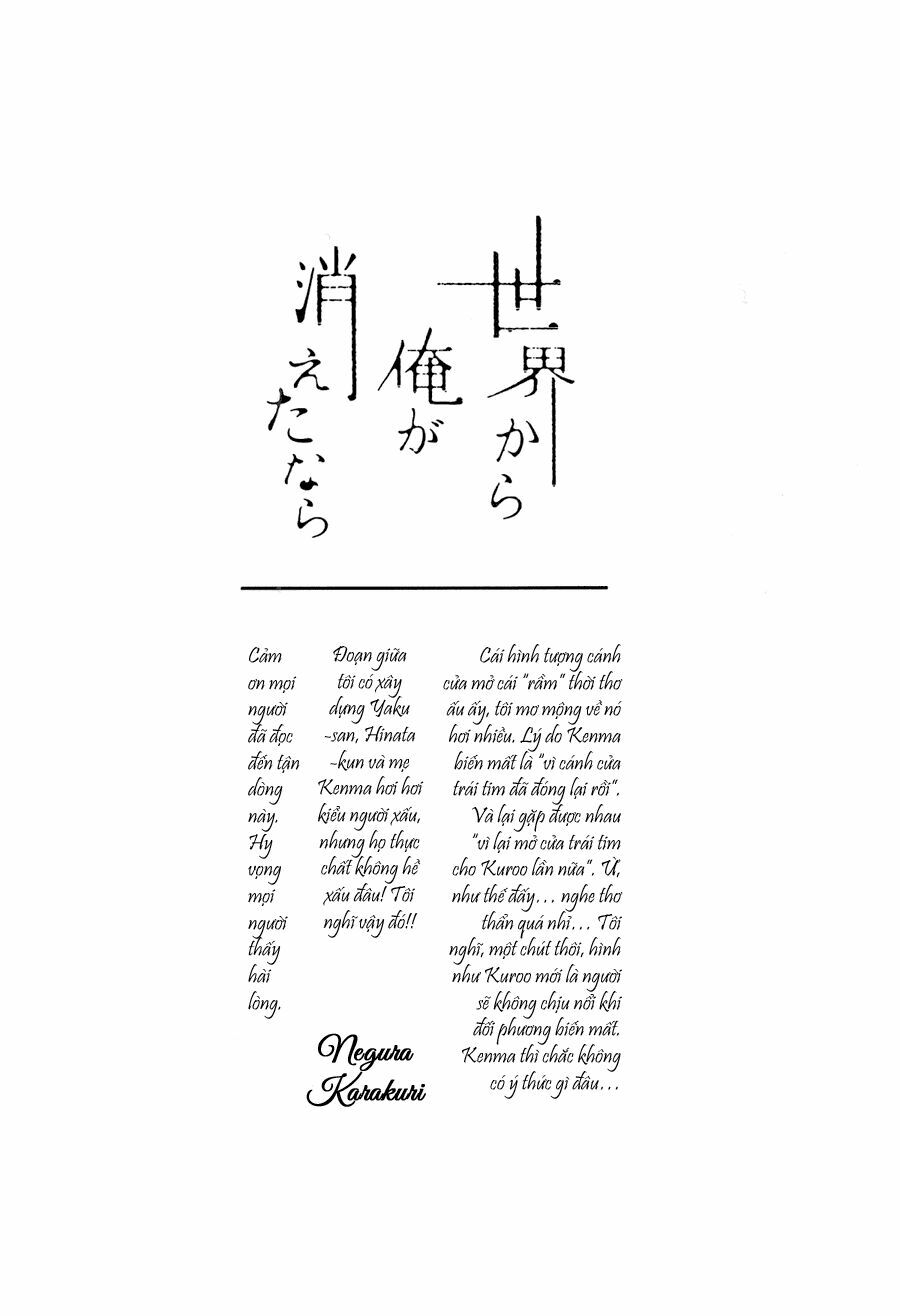 世界から
俺が
消えたなら
Cái hình tượng cánh
cửa mở cái "rầm" thời thơ
ấu ấy, tôi mơ mộng về nó
hơi nhiều. Lý do Kenma
biến mất là "vì cánh cửa
trái tim đã đóng lại rồi".
Và lại gặp được nhau
"vì lại mở cửa trái tim
cho Kuroo lần nữa". Ừ,
như thế đấy... nghe thơ
thẩn quá nhỉ... Tôi
nghĩ, một chút thôi, hình
như Kuroo mới là người
sẽ không chịu nổi khi
đối phương biến mất.
Kenma thì chắc không
có ý thức gì đâu...
Đoạn giữa
tôi có xây
dựng Yaku
-san, Hinata
-kun và mẹ
Kenma hơi hơi
kiểu người xấu,
nhưng họ thực
chất không hề
xấu đâu! Tôi
nghĩ vậy đó!!
Cảm
ơn mọi
người
đã đọc
đến tận
dòng
này.
Hy
vọng
mọi
người
thấy
hài
lòng.
Negura
Karakuri